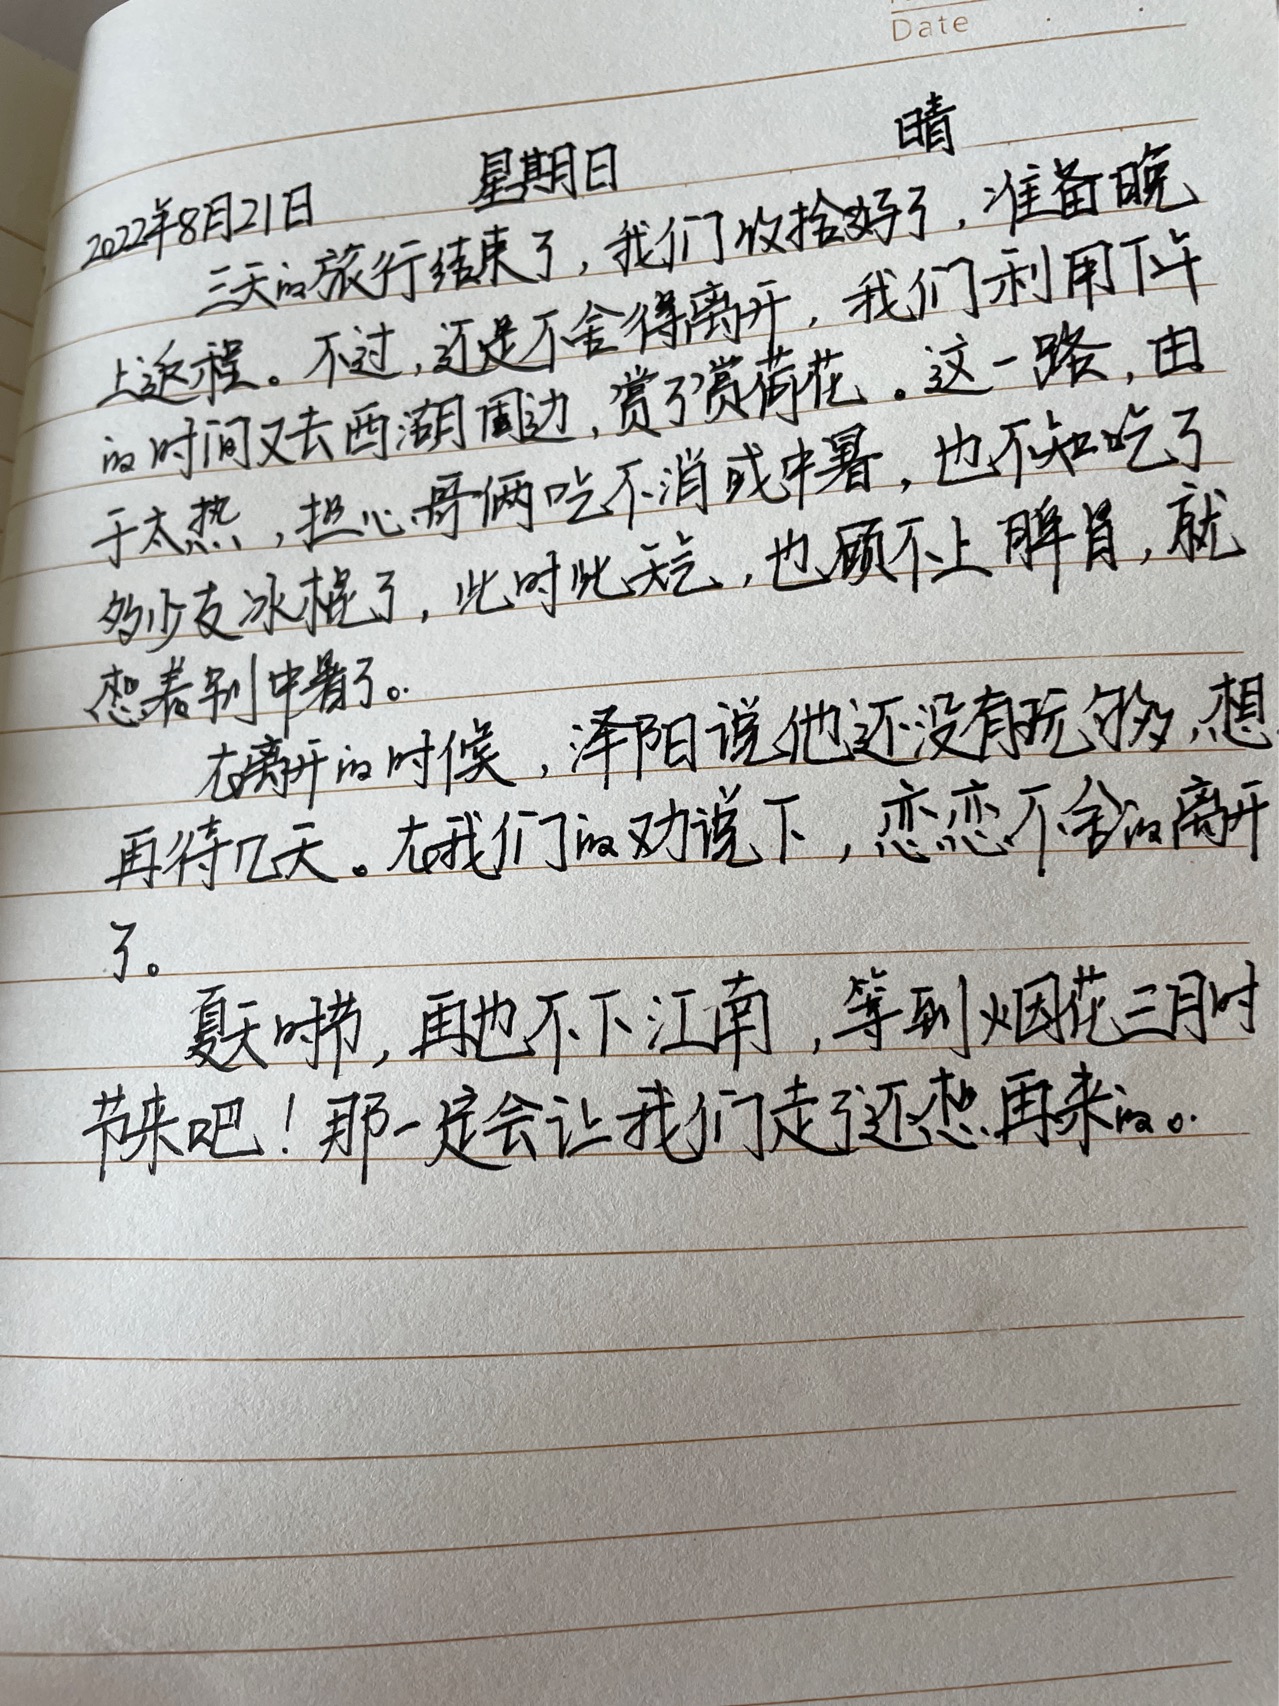 Date
2022年8月21日 星期日 晴
三天的旅行结束了，我们收拾好了，准备晚
上返程。不过，还是不舍得离开，我们利用下午
的时间又去西湖周边，赏了赏荷花。这一路，由
于太热，担心哥俩吃不消或中暑，也不知吃了
多少支冰棍了，此时此天气，也顾不上脾胃，就
想着别中暑了。
在离开的时候，泽阳说他还没有玩够，想
再待几天。在我们的劝说下，恋恋不舍的离开
了。
夏天时节，再也不下江南，等到烟花三月时
节来吧！那一定会让我们走了还想再来的。